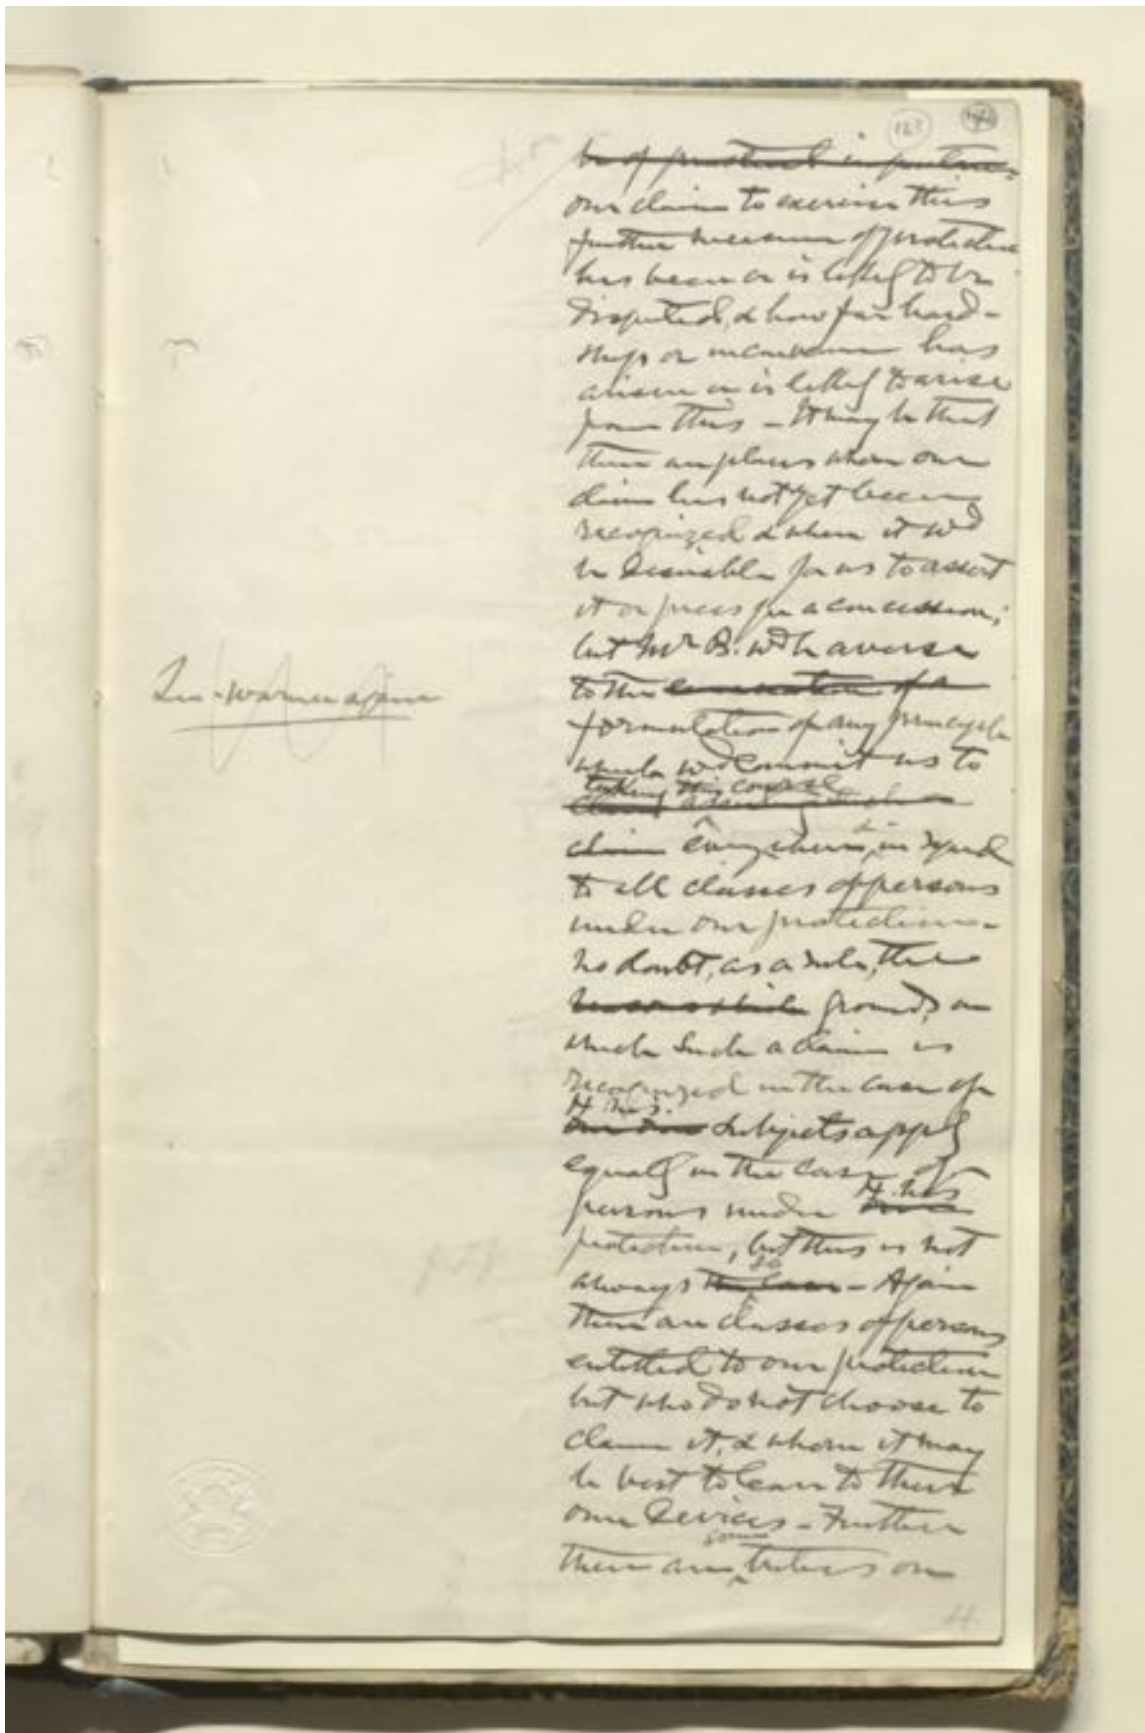 123
be of practical importance
our claim to exercise this
further measure of protection
has been or is likely to be
disputed, & how far hard-
ships or inconvenience has
arisen or is likely to arise
from this - It may be that
there are places where our
claim has not yet been
recognized & where it wd
be desirable for us to assert
it or press for a concession;
but Mr B. wd be averse
to the of a
formulation of any principle
which wd commit us to
taking this course
claim everywhere, & in regard
to all classes of persons
under our protection -
no doubt, as a rule, the
grounds on
which such a claim is
recognized in the case of
H. M's.
our own subjects apply
equally in the case of
H. M's
persons under
protection, but this is not
so
always the case - Again
there are classes of persons
entitled to our protection
but who do not choose to
claim it, & whom it may
be best to leave to their
own devices - Further
some
there are tribes on
4